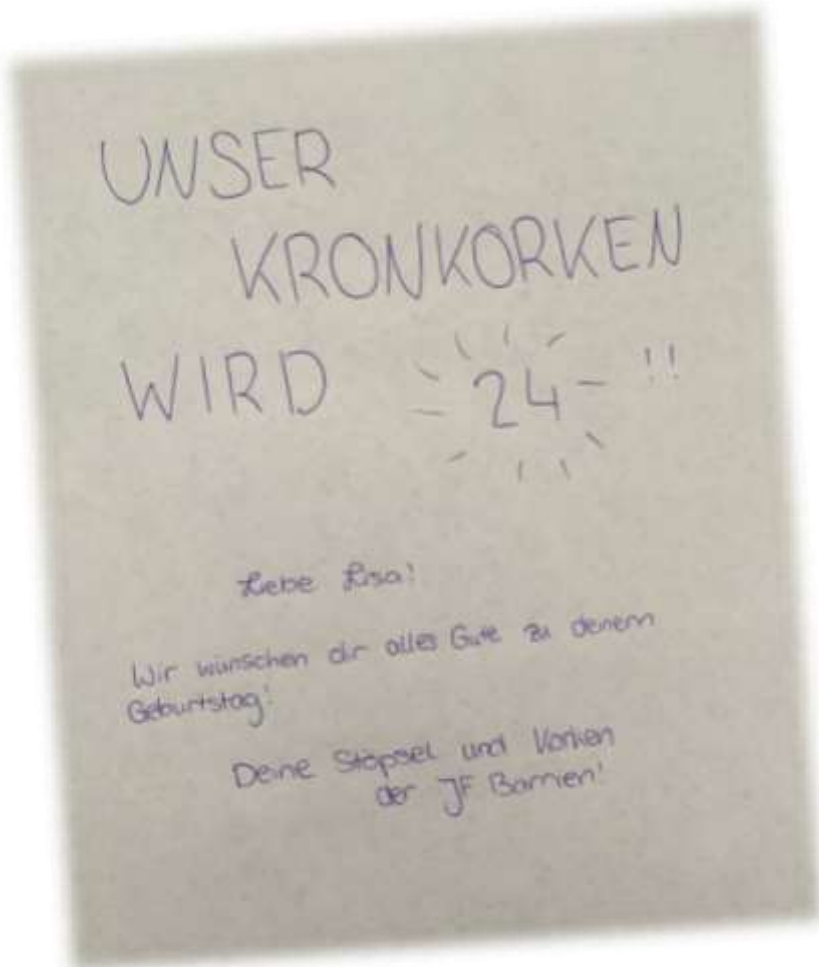 UNSER
KRONKORKEN
WIRD 24 !!
Liebe Lisa!
Wir wünschen dir alles Gute zu deinem
Geburtstag!
Deine Stöpsel und Korken
der JF Barrien!